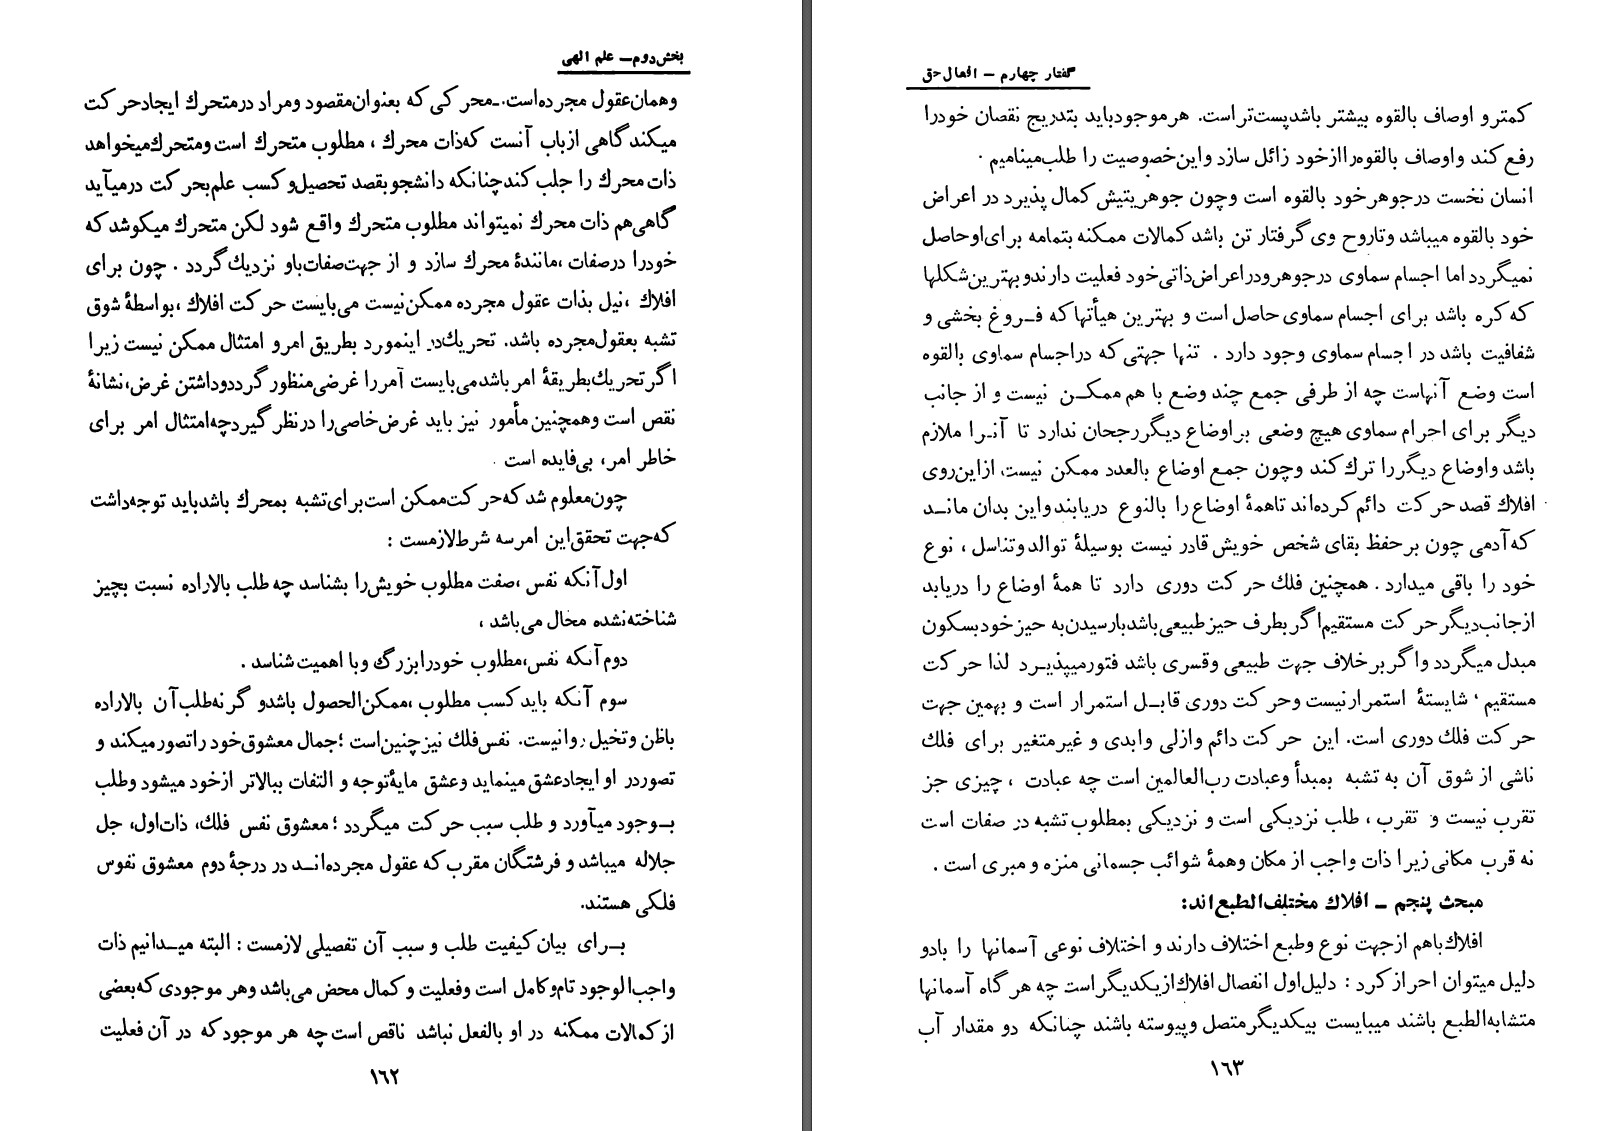 بخش دوم ــ علم الهی
وهمان عقول مجرده است. ـ محرکی که بعنوان مقصود ومراد در متحرك ایجاد حرکت
میکند گاهی از باب آنست که ذات محرك ، مطلوب متحرك است ومتحرك میخواهد
ذات محرك را جلب کند چنانکه دانشجو بقصد تحصیل و کسب علم بحرکت درمیآید
گاهی هم ذات محرك نمیتواند مطلوب متحرك واقع شود لکن متحرك میکوشد که
خودرا در صفات ، مانندۀ محرك سازد و از جهت صفات باو نزدیك گردد . چون برای
افلاك ، نیل بذات عقول مجرده ممکن نیست می‌بایست حرکت افلاك ، بواسطۀ شوق
تشبه بعقول مجرده باشد. تحریك در اینمورد بطریق امر و امتثال ممکن نیست زیرا
اگر تحریك بطریقۀ امر باشد می‌بایست آمر را غرضی منظور گردد وداشتن غرض، نشانۀ
نقص است وهمچنین مأمور نیز باید غرض خاصی را در نظر گیرد چه امتثال امر برای
خاطر امر، بی‌فایده است .
چون معلوم شد که حرکت ممکن است برای تشبه بمحرك باشد باید توجه داشت
که جهت تحقق این امر سه شرط لازمست :
اول آنکه نفس ، صفت مطلوب خویش را بشناسد چه طلب بالاراده نسبت بچیز
شناخته نشده محال می‌باشد ،
دوم آنکه نفس، مطلوب خودرا بزرگ و با اهمیت شناسد .
سوم آنکه باید کسب مطلوب ، ممکن‌الحصول باشد و گرنه طلب آن بالاراده
باظن وتخیل روا نیست. نفس فلك نیز چنین است ؛ جمال معشوق خود را تصور میکند و
تصور در او ایجاد عشق مینماید وعشق مایۀ توجه و التفات ببالاتر از خود میشود وطلب
بــوجود میآورد و طلب سبب حرکت میگردد ؛ معشوق نفس فلك، ذات اول، جل
جلاله میباشد و فرشتگان مقرب که عقول مجرده‌انــد در درجۀ دوم معشوق نفوس
فلکی هستند.
بــرای بیان کیفیت طلب و سبب آن تفصیلی لازمست : البته میــدانیم ذات
واجب‌الوجود تام و کامل است وفعلیت و کمال محض می‌باشد وهر موجودی که بعضی
از کمالات ممکنه در او بالفعل نباشد ناقص است چه هر موجود که در آن فعلیت
۱۶۲
گفتار چهارم ــ افعال حق
کمتر و اوصاف بالقوه بیشتر باشد پست‌تر است. هر موجود باید بتدریج نقصان خودرا
رفع کند و اوصاف بالقوه را از خود زائل سازد و این خصوصیت را طلب مینامیم .
انسان نخست در جوهر خود بالقوه است وچون جوهریتش کمال پذیرد در اعراض
خود بالقوه میباشد وتا روح وی گرفتار تن باشد کمالات ممکنه بتمامه برای او حاصل
نمیگردد اما اجسام سماوی در جوهر ودر اعراض ذاتی خود فعلیت دارند و بهترین شکلها
که کره باشد برای اجسام سماوی حاصل است و بهترین هیأتها که فــروغ بخشی و
شفافیت باشد در اجسام سماوی وجود دارد . تنها جهتی که در اجسام سماوی بالقوه
است وضع آنهاست چه از طرفی جمع چند وضع با هم ممکــن نیست و از جانب
دیگر برای اجرام سماوی هیچ وضعی بر اوضاع دیگر رجحان ندارد تا آنــرا ملازم
باشد و اوضاع دیگر را ترك کند وچون جمع اوضاع بالعدد ممکن نیست، از این روی
افلاك قصد حرکت دائم کرده‌اند تا همۀ اوضاع را بالنوع دریابند و این بدان مانــد
که آدمی چون بر حفظ بقای شخص خویش قادر نیست بوسیلۀ توالد و تناسل ، نوع
خود را باقی میدارد . همچنین فلك حرکت دوری دارد تا همۀ اوضاع را دریابد
از جانب دیگر حرکت مستقیم اگر بطرف حیز طبیعی باشد با رسیدن به حیز خود بسکون
مبدل میگردد و اگر بر خلاف جهت طبیعی وقسری باشد فتور میپذیــرد لذا حرکت
مستقیم ، شایستۀ استمرار نیست وحرکت دوری قابــل استمرار است و بهمین جهت
حرکت فلك دوری است. این حرکت دائم وازلی وابدی و غیر متغیر برای فلك
ناشی از شوق آن به تشبه بمبدأ وعبادت رب‌العالمین است چه عبادت ، چیزی جز
تقرب نیست و تقرب ، طلب نزدیکی است و نزدیکی بمطلوب تشبه در صفات است
نه قرب مکانی زیرا ذات واجب از مکان وهمۀ شوائب جسمانی منزه و مبری است .
مبحث پنجم ــ افلاك مختلف‌الطبع‌اند:
افلاك باهم از جهت نوع وطبع اختلاف دارند و اختلاف نوعی آسمانها را بادو
دلیل میتوان احراز کرد : دلیل اول انفصال افلاك از یکدیگر است چه هر گاه آسمانها
متشابه‌الطبع باشند میبایست بیکدیگر متصل و پیوسته باشند چنانکه دو مقدار آب
۱۶۳